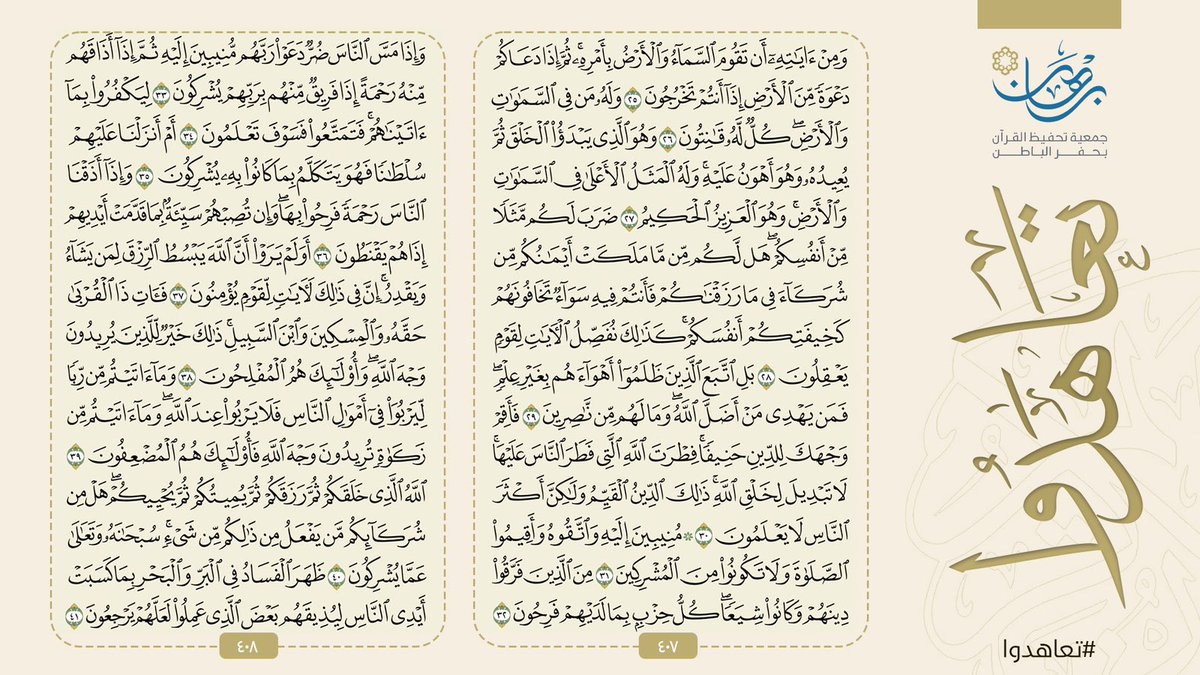 برهان
جمعية تحفيظ القرآن
بحفر الباطن
تعاهدوا
#تعاهدوا
وَمِنْ ءَايَـٰتِهِۦٓ أَن تَقُومَ ٱلسَّمَآءُ وَٱلْأَرْضُ بِأَمْرِهِۦ ۚ ثُمَّ إِذَا دَعَاكُمْ
دَعْوَةً مِّنَ ٱلْأَرْضِ إِذَآ أَنتُمْ تَخْرُجُونَ ٢٥ وَلَهُۥ مَن فِى ٱلسَّمَـٰوَٰتِ
وَٱلْأَرْضِ ۖ كُلٌّ لَّهُۥ قَـٰنِتُونَ ٢٦ وَهُوَ ٱلَّذِى يَبْدَؤُا۟ ٱلْخَلْقَ ثُمَّ
يُعِيدُهُۥ وَهُوَ أَهْوَنُ عَلَيْهِ ۚ وَلَهُ ٱلْمَثَلُ ٱلْأَعْلَىٰ فِى ٱلسَّمَـٰوَٰتِ
وَٱلْأَرْضِ ۚ وَهُوَ ٱلْعَزِيزُ ٱلْحَكِيمُ ٢٧ ضَرَبَ لَكُم مَّثَلًا
مِّنْ أَنفُسِكُمْ ۖ هَل لَّكُم مِّن مَّا مَلَكَتْ أَيْمَـٰنُكُم مِّن
شُرَكَآءَ فِى مَا رَزَقْنَـٰكُمْ فَأَنتُمْ فِيهِ سَوَآءٌ تَخَافُونَهُمْ
كَخِيفَتِكُمْ أَنفُسَكُمْ ۚ كَذَٰلِكَ نُفَصِّلُ ٱلْـَٔايَـٰتِ لِقَوْمٍ
يَعْقِلُونَ ٢٨ بَلِ ٱتَّبَعَ ٱلَّذِينَ ظَلَمُوٓا۟ أَهْوَآءَهُم بِغَيْرِ عِلْمٍ ۖ
فَمَن يَهْدِى مَنْ أَضَلَّ ٱللَّهُ ۖ وَمَا لَهُم مِّن نَّـٰصِرِينَ ٢٩ فَأَقِمْ
وَجْهَكَ لِلدِّينِ حَنِيفًا ۚ فِطْرَتَ ٱللَّهِ ٱلَّتِى فَطَرَ ٱلنَّاسَ عَلَيْهَا ۚ
لَا تَبْدِيلَ لِخَلْقِ ٱللَّهِ ۚ ذَٰلِكَ ٱلدِّينُ ٱلْقَيِّمُ وَلَـٰكِنَّ أَكْثَرَ
ٱلنَّاسِ لَا يَعْلَمُونَ ٣٠ ۞ مُنِيبِينَ إِلَيْهِ وَٱتَّقُوهُ وَأَقِيمُوا۟
ٱلصَّلَوٰةَ وَلَا تَكُونُوا۟ مِنَ ٱلْمُشْرِكِينَ ٣١ مِنَ ٱلَّذِينَ فَرَّقُوا۟
دِينَهُمْ وَكَانُوا۟ شِيَعًا ۖ كُلُّ حِزْبٍۭ بِمَا لَدَيْهِمْ فَرِحُونَ ٣٢
٤٠٧
وَإِذَا مَسَّ ٱلنَّاسَ ضُرٌّ دَعَوْا۟ رَبَّهُم مُّنِيبِينَ إِلَيْهِ ثُمَّ إِذَآ أَذَاقَهُم
مِّنْهُ رَحْمَةً إِذَا فَرِيقٌ مِّنْهُم بِرَبِّهِمْ يُشْرِكُونَ ٣٣ لِيَكْفُرُوا۟ بِمَآ
ءَاتَيْنَـٰهُمْ ۚ فَتَمَتَّعُوا۟ فَسَوْفَ تَعْلَمُونَ ٣٤ أَمْ أَنزَلْنَا عَلَيْهِمْ
سُلْطَـٰنًا فَهُوَ يَتَكَلَّمُ بِمَا كَانُوا۟ بِهِۦ يُشْرِكُونَ ٣٥ وَإِذَآ أَذَقْنَا
ٱلنَّاسَ رَحْمَةً فَرِحُوا۟ بِهَا ۖ وَإِن تُصِبْهُمْ سَيِّئَةٌۢ بِمَا قَدَّمَتْ أَيْدِيهِمْ
إِذَا هُمْ يَقْنَطُونَ ٣٦ أَوَلَمْ يَرَوْا۟ أَنَّ ٱللَّهَ يَبْسُطُ ٱلرِّزْقَ لِمَن يَشَآءُ
وَيَقْدِرُ ۚ إِنَّ فِى ذَٰلِكَ لَـَٔايَـٰتٍ لِّقَوْمٍ يُؤْمِنُونَ ٣٧ فَـَٔاتِ ذَا ٱلْقُرْبَىٰ
حَقَّهُۥ وَٱلْمِسْكِينَ وَٱبْنَ ٱلسَّبِيلِ ۚ ذَٰلِكَ خَيْرٌ لِّلَّذِينَ يُرِيدُونَ
وَجْهَ ٱللَّهِ ۖ وَأُو۟لَـٰٓئِكَ هُمُ ٱلْمُفْلِحُونَ ٣٨ وَمَآ ءَاتَيْتُم مِّن رِّبًا
لِّيَرْبُوَا۟ فِىٓ أَمْوَٰلِ ٱلنَّاسِ فَلَا يَرْبُوا۟ عِندَ ٱللَّهِ ۖ وَمَآ ءَاتَيْتُم مِّن
زَكَوٰةٍ تُرِيدُونَ وَجْهَ ٱللَّهِ فَأُو۟لَـٰٓئِكَ هُمُ ٱلْمُضْعِفُونَ ٣٩
ٱللَّهُ ٱلَّذِى خَلَقَكُمْ ثُمَّ رَزَقَكُمْ ثُمَّ يُمِيتُكُمْ ثُمَّ يُحْيِيكُمْ ۖ هَلْ مِن
شُرَكَآئِكُم مَّن يَفْعَلُ مِن ذَٰلِكُم مِّن شَىْءٍ ۚ سُبْحَـٰنَهُۥ وَتَعَـٰلَىٰ
عَمَّا يُشْرِكُونَ ٤٠ ظَهَرَ ٱلْفَسَادُ فِى ٱلْبَرِّ وَٱلْبَحْرِ بِمَا كَسَبَتْ
أَيْدِى ٱلنَّاسِ لِيُذِيقَهُم بَعْضَ ٱلَّذِى عَمِلُوا۟ لَعَلَّهُمْ يَرْجِعُونَ ٤١
٤٠٨